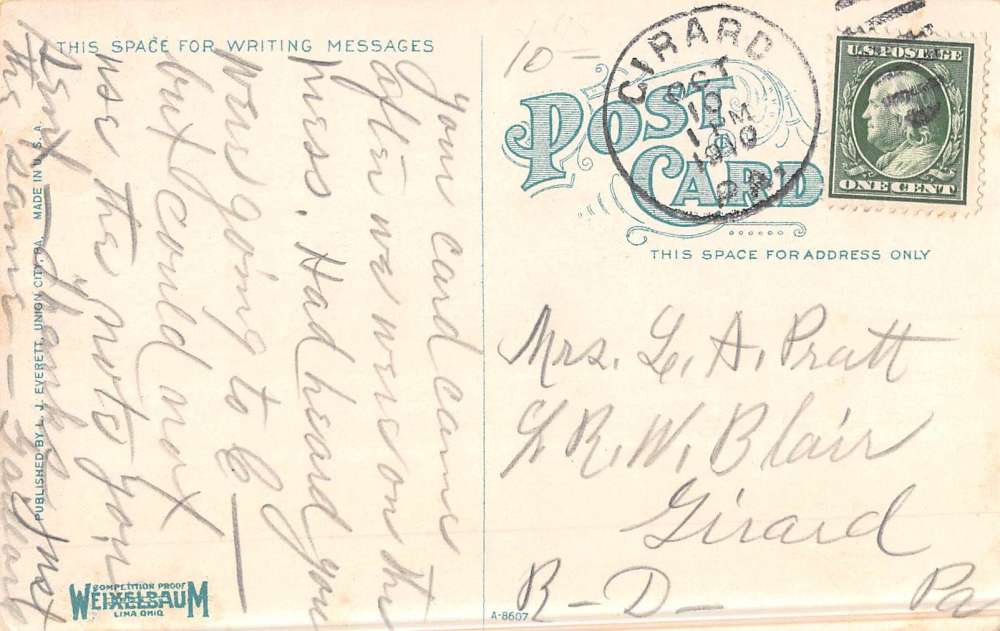 THIS SPACE FOR WRITING MESSAGES
Your card came
after we were on the
press. Had heard you
were going to C—
but could not
use the "note" you
sent — thanks just
the same —
PUBLISHED BY L. J. EVERETT, UNION CITY, PA. MADE IN U.S.A.
COMPETITION PROOF
WEIXELBAUM
LIMA OHIO
10-
POST
CARD
GIRARD
OCT
10
11 M
1910
PA.
U.S. POSTAGE
ONE CENT
THIS SPACE FOR ADDRESS ONLY
Mrs. L. A. Pratt
℅ R. W. Blair
Girard
R-D- Pa
A-8607